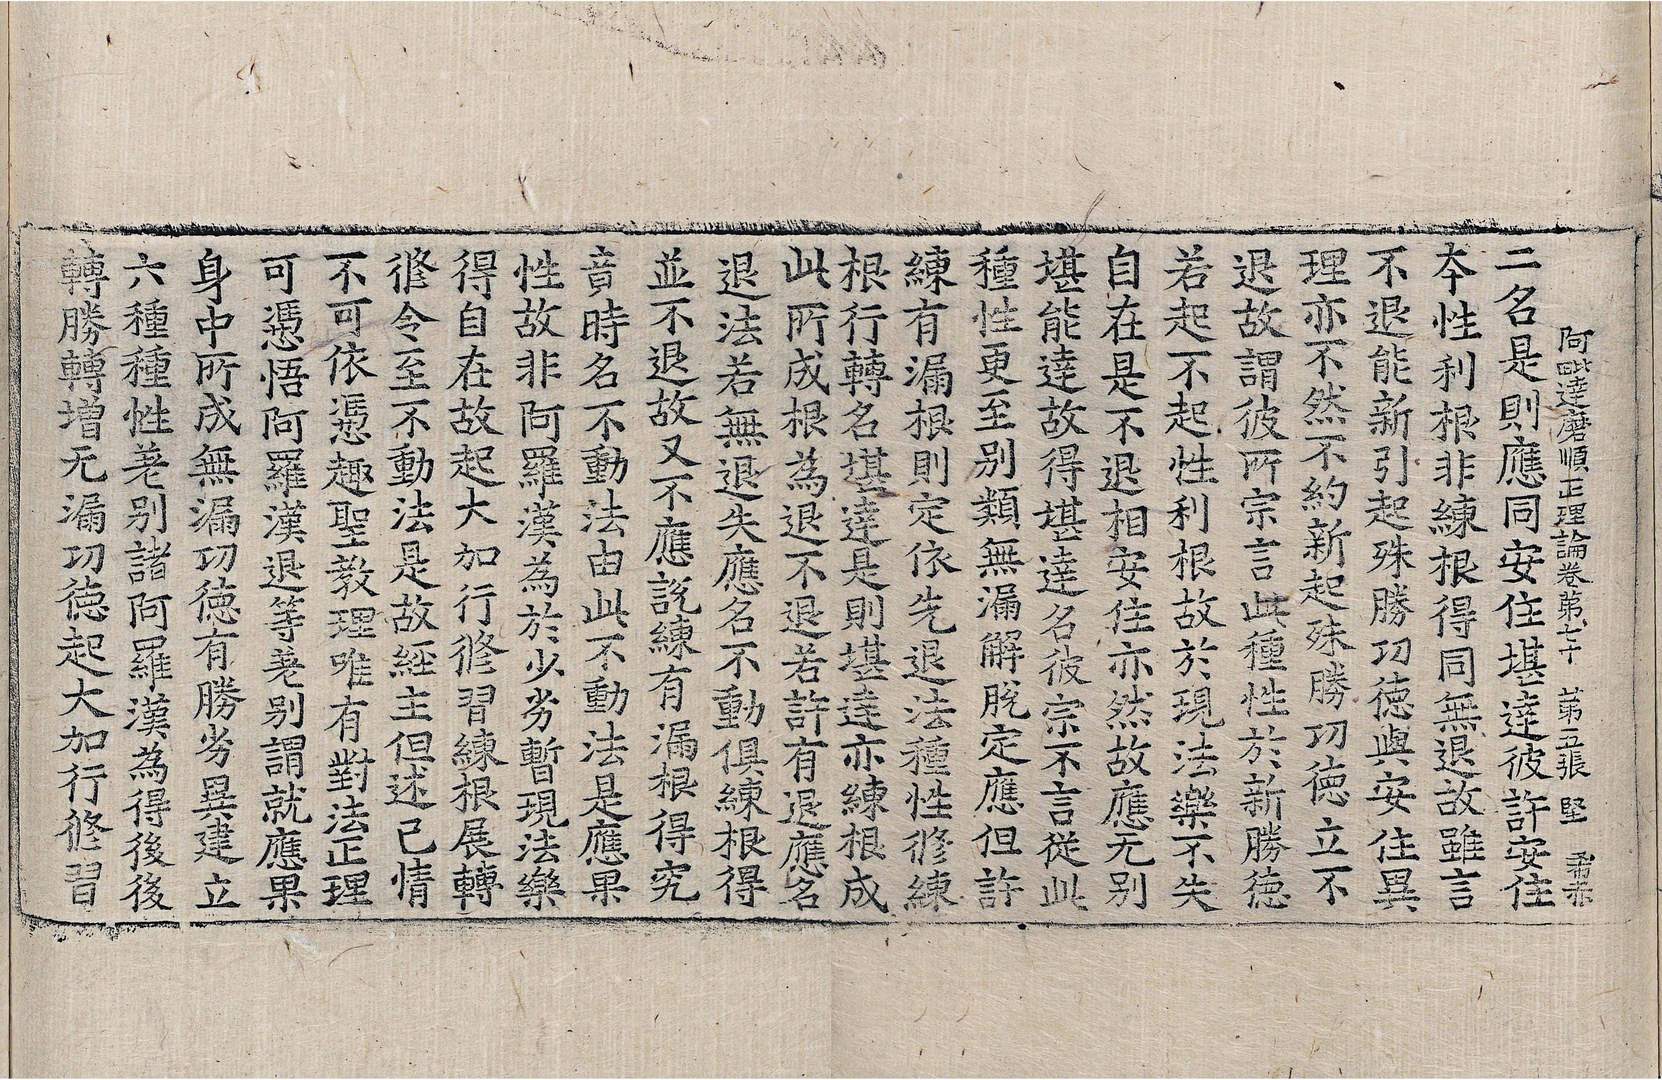 阿毗達磨順正理論卷苐七十 苐五張 堅
二名是則應同安住堪達彼許安住
夲性利根非練根得同無退故雖言
不退能新引起殊勝㓛德與安住異
理亦不然不約新起殊勝㓛德立不
退故謂彼所宗言此種性於新勝德
若起不起性利根故於現法樂不失
自在是不退相安住亦然故應无别
堪能達故得堪達名彼宗不言從此
種性更至别類無漏解脫定應但許
練有漏根則定依先退法種性修練
根行轉名堪達是則堪達亦練根成
此所成根為退不退若許有退應名
退法若無退失應名不動俱練根得
並不退故又不應說練有漏根得究
竟時名不動法由此不動法是應果
性故非阿羅漢為於少劣暫現法樂
得自在故起大加行修習練根展轉
修令至不動法是故經主但述己情
不可依憑趣聖教理唯有對法正理
可憑悟阿羅漢退等差别謂就應果
身中所成無漏㓛德有勝劣異建立
六種種性差别諸阿羅漢為得後後
轉勝轉增无漏㓛德起大加行修習